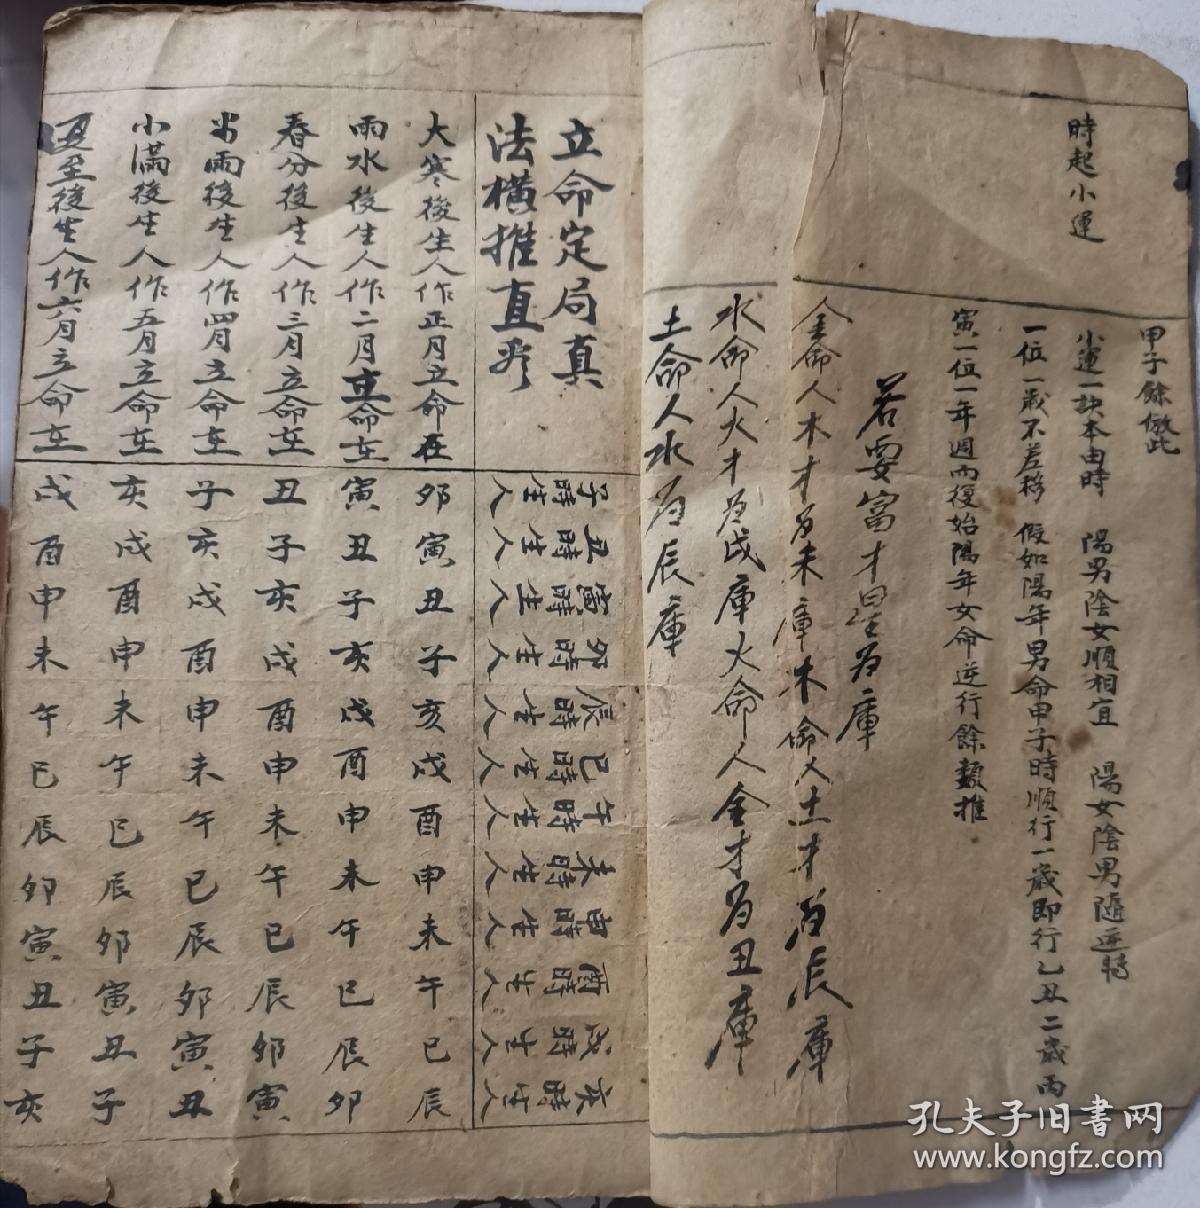 時起小運
甲子餘倣此
小運一訣本由時 陽男陰女順相宜 陽女陰男隨逆轉
一位一歲不差移 假如陽年男命甲子時順行一歲即行乙丑二歲丙
寅一位一年週而復始陽年女命逆行餘類推
若要富才星為庫
金命人木才為未庫木命人土才為辰庫
水命人火才為戌庫火命人金才為丑庫
土命人水為辰庫
立命定局真
法橫推直看
子時生人
丑時生人
寅時生人
卯時生人
辰時生人
巳時生人
午時生人
未時生人
申時生人
酉時生人
戌時生人
亥時生人
大寒後生人作正月立命在 卯寅丑子亥戌酉申未午巳辰
雨水後生人作二月立命在 寅丑子亥戌酉申未午巳辰卯
春分後生人作三月立命在 丑子亥戌酉申未午巳辰卯寅
谷雨後生人作四月立命在 子亥戌酉申未午巳辰卯寅丑
小滿後生人作五月立命在 亥戌酉申未午巳辰卯寅丑子
夏至後生人作六月立命在 戌酉申未午巳辰卯寅丑子亥
孔夫子旧书网
www.kongfz.com